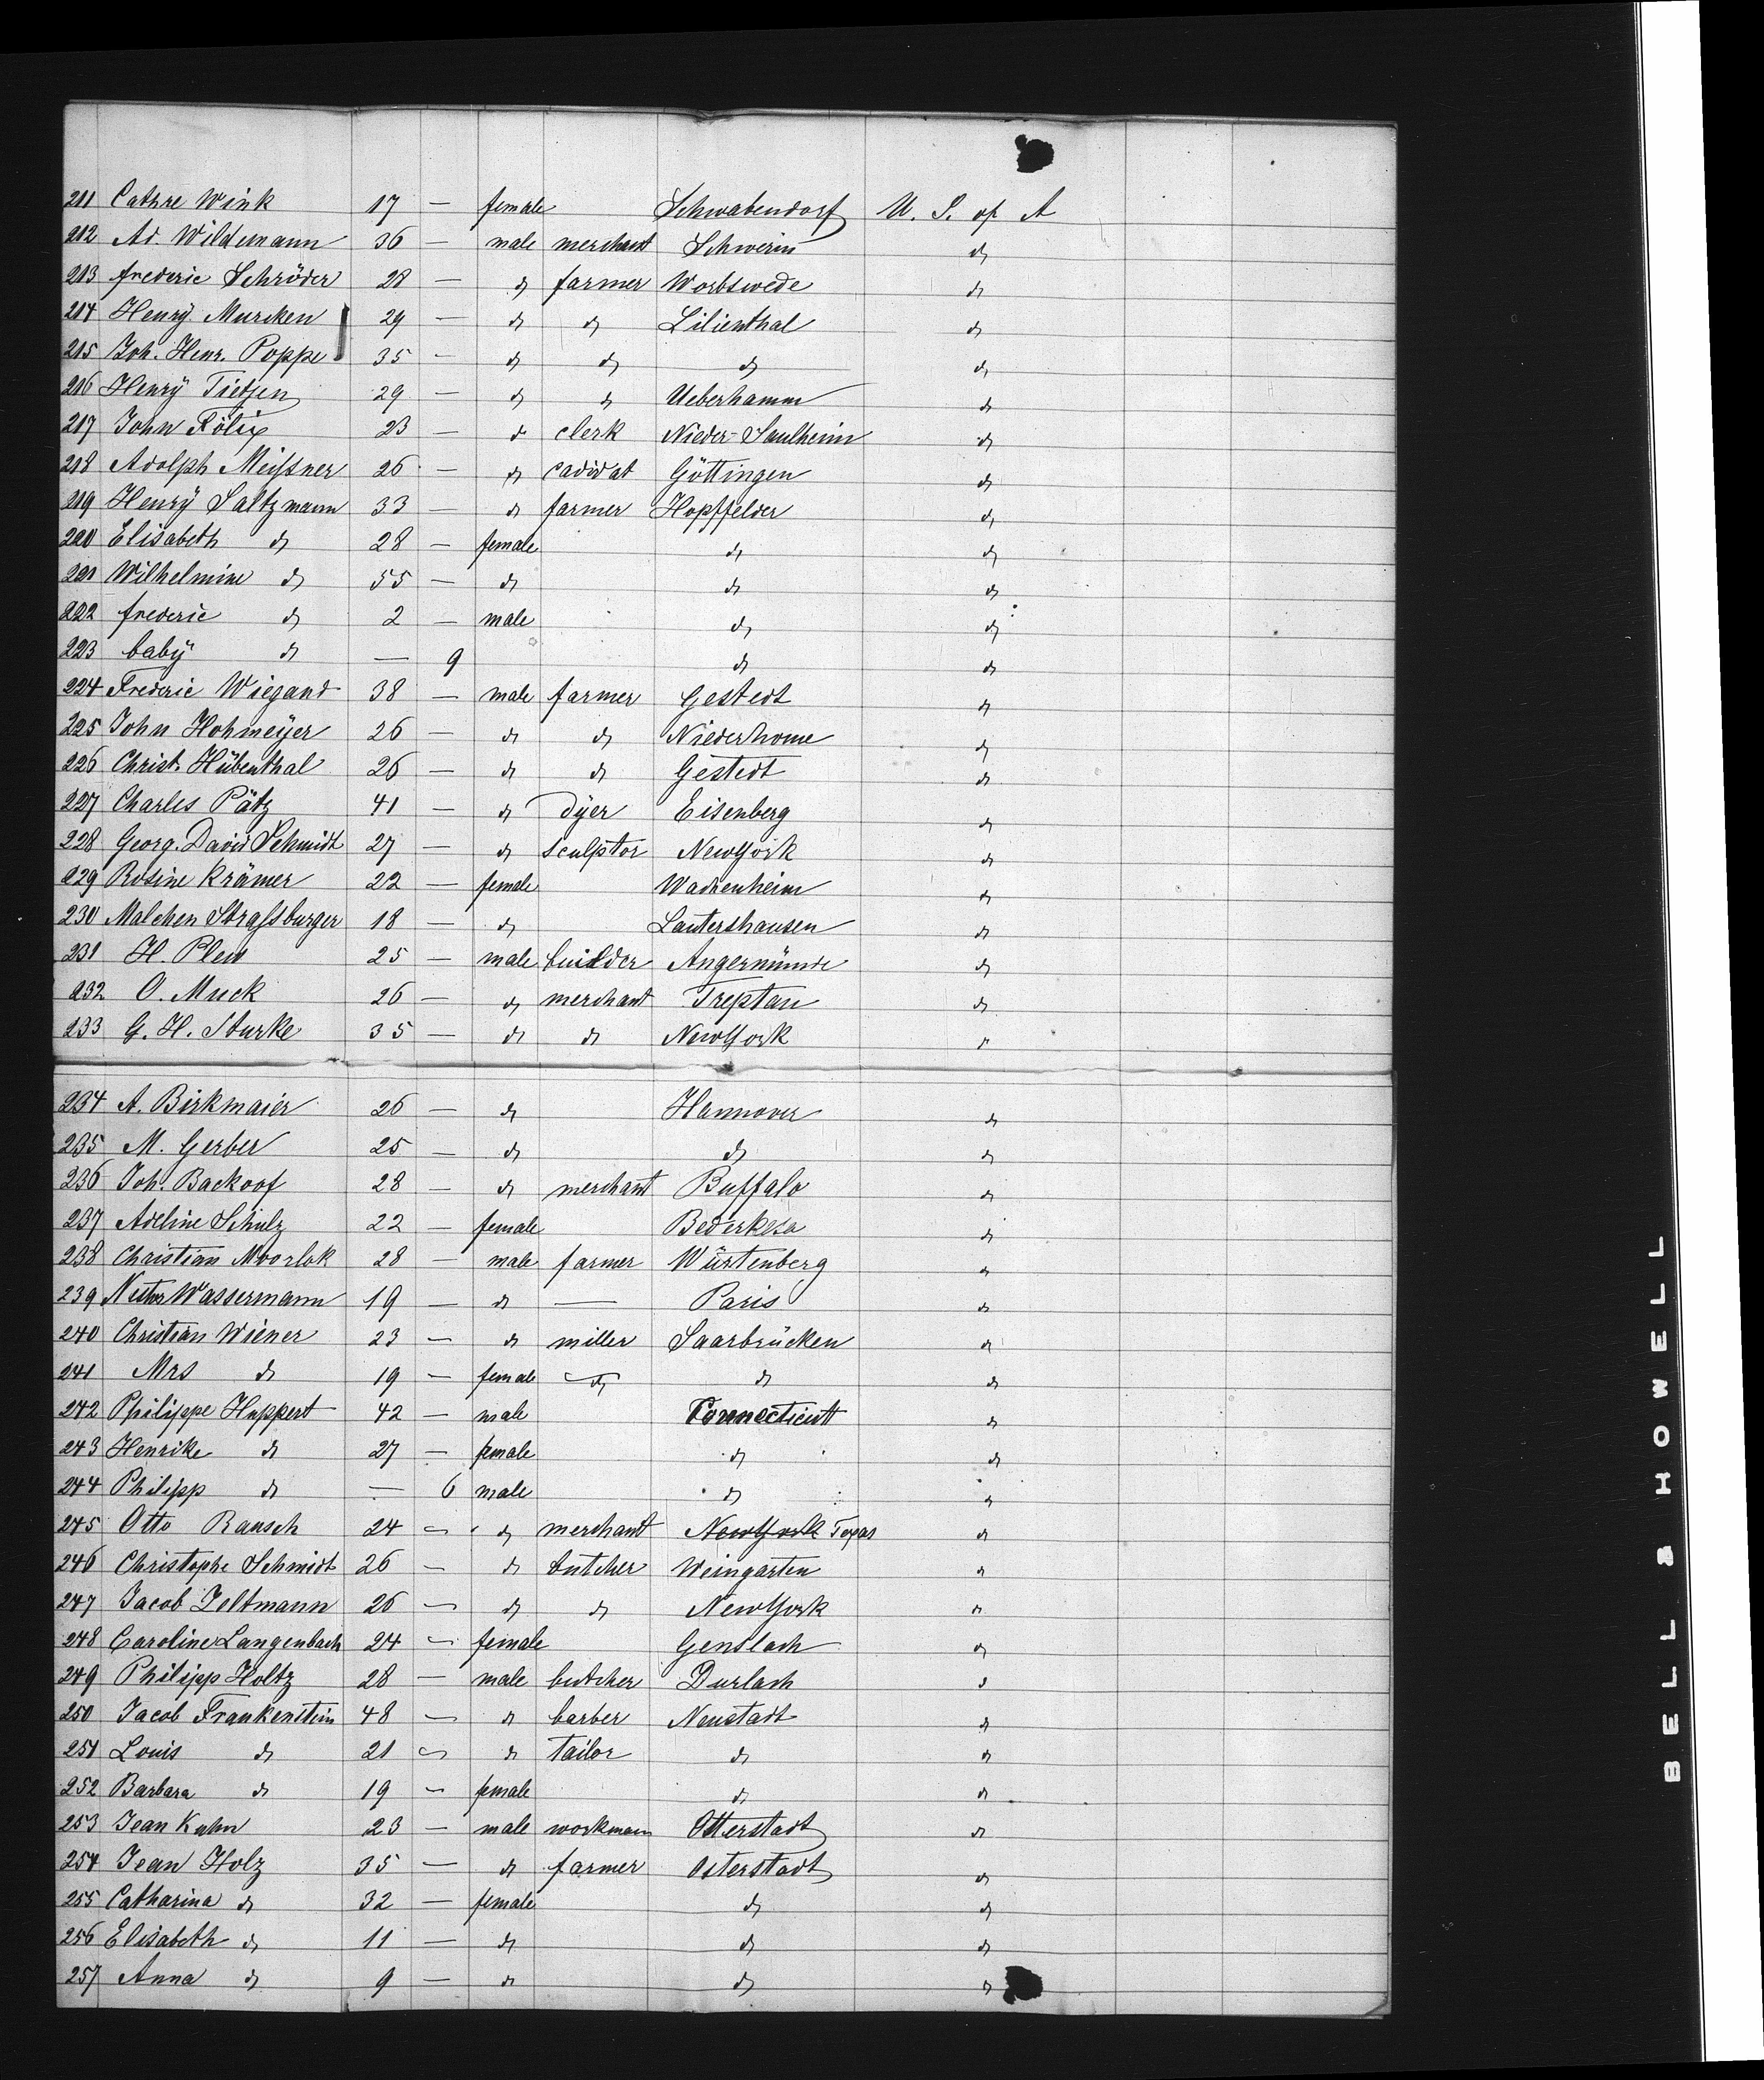 211 Cathre Wink 17 — female Schwabendorf U. S. of A
212 Ad. Wildemann 36 — male merchant Schwerin do
213 frederic Schröder 28 — do farmer Worbswede do
214 Henry Murcken 29 — do do Lilienthal do
215 Joh. Henr. Poppe 35 — do do do do
216 Henry Tietjen 29 — do do Ueberhamm do
217 John 23 — do clerk Nieder-Saulheim do
218 Adolph Meißner 26 — do cadidat Göttingen do
219 Henry Saltzmann 33 — do farmer Hopffelder do
220 Elisabeth do 28 — female do do
221 Wilhelmine do 55 — do do do
222 frederic do 2 — male do do
223 baby do — 9 do do
224 Frederic Wiegand 38 — male farmer Gestedt do
225 John Hohmeyer 26 — do do Niederhone do
226 Christ. Hübenthal 26 — do do Gestedt do
227 Charles Pätz 41 — do dyer Eisenberg do
228 Georg. David Schmidt 27 — do sculptor NewYork do
229 Rosine Krämer 22 — female Wachenheim do
230 Malchen Straßburger 18 — do Lautershausen do
231 H. Plew 25 — male builder Angermünde do
232 O. Muck 26 — do merchant Treptau do
233 G. H. Sturke 35 — do do NewYork do
234 A. Birkmaier 26 — do Hannover do
235 M. Gerber 25 — do do do
236 Joh. Backoof 28 — do merchant Buffalo do
237 Adeline Schulz 22 — female Bederkesa do
238 Christian Moorlok 28 — male farmer Würtenberg do
239 Wassermann 19 — do — Paris do
240 Christian Wiener 23 — do miller Saarbrücken do
241 Mrs do 19 — female do do do
242 Philippe Huppert 42 — male Connecticutt do
243 Henrike do 27 — female do do
244 Philipp do — 6 male do do
245 Otto Rausch 24 — do merchant NewYork Texas do
246 Christophe Schmidt 26 — do butcher Weingarten do
247 Jacob Zeltmann 26 — do do NewYork do
248 Caroline Langenbach 24 — female Genslach do
249 Philipp Holtz 28 — male butcher Durlach do
250 Jacob Frankenstein 48 — do barber Neustadt do
251 Louis do 21 — do tailor do do
252 Barbara do 19 — female do do
253 Jean Kuhn 23 — male workman Otterstadt do
254 Jean Holz 35 — do farmer Osterstadt do
255 Catharina do 32 — female do do
256 Elisabeth do 11 — do do do
257 Anna do 9 — do do do
BELL & HOWELL